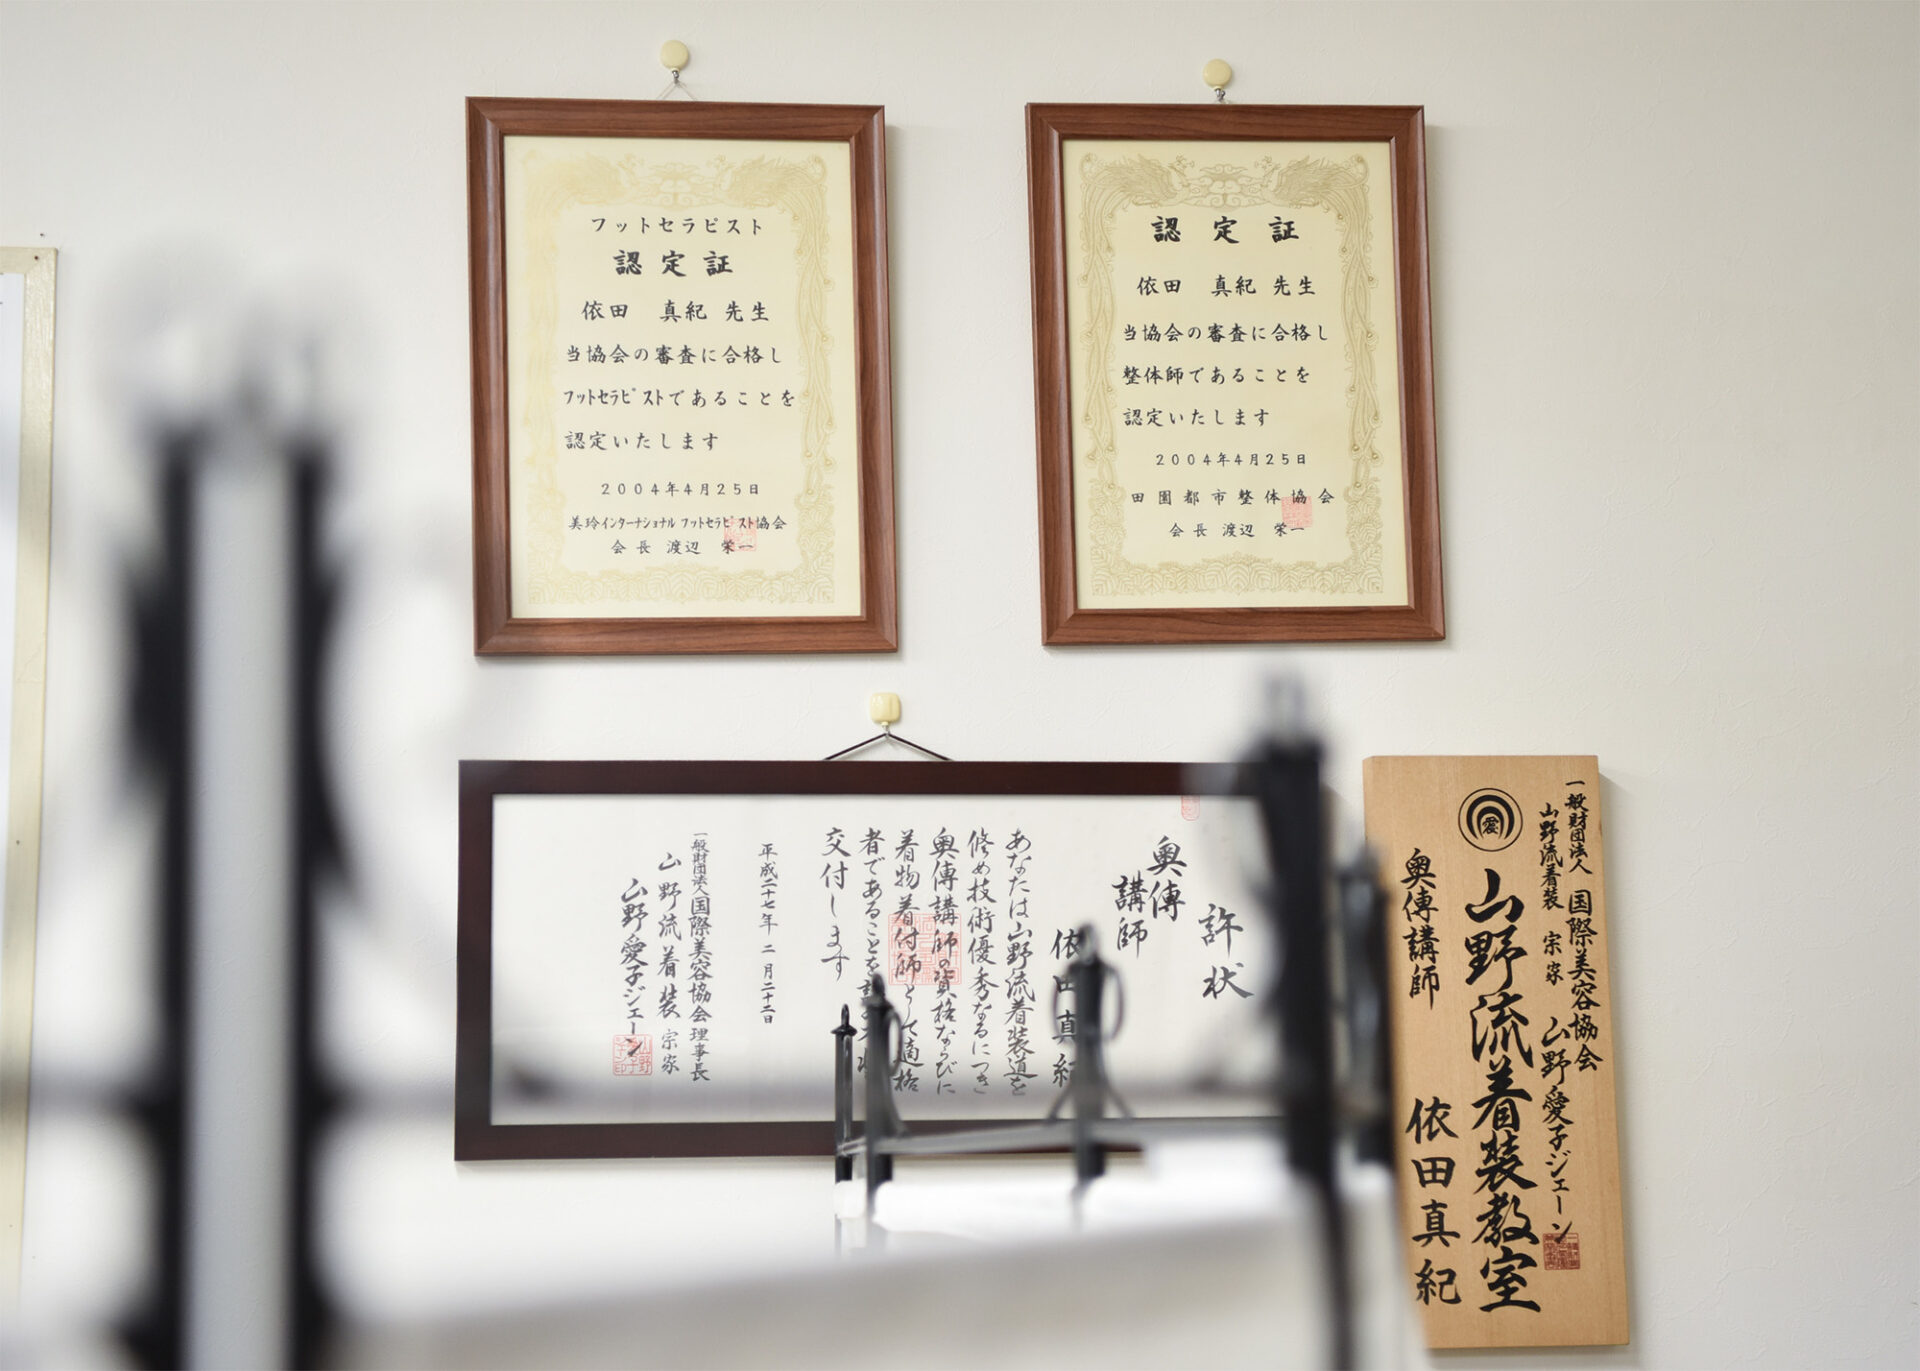 フットセラピスト
認定証
依田 真紀 先生
当協会の審査に合格し
フットセラピストであることを
認定いたします
2004年4月25日
美玲インターナショナル フットセラピスト協会
会長 渡辺 栄一
認定証
依田 真紀 先生
当協会の審査に合格し
整体師であることを
認定いたします
2004年4月25日
田園都市整体協会
会長 渡辺 栄一
許状
奥傳
講師
依田真紀
あなたは山野流着装道を
修め技術優秀なるにつき
奥傳講師の資格ならびに
着物着付師として適格
者であることを
交付します
平成二十七年 二月二十二日
一般財団法人国際美容協会 理事長
山野流着装 宗家
山野愛子ジェーン
一般財団法人 国際美容協会
山野流着装 宗家 山野愛子ジェーン
愛
山野流着装教室
奥傳講師 依田真紀